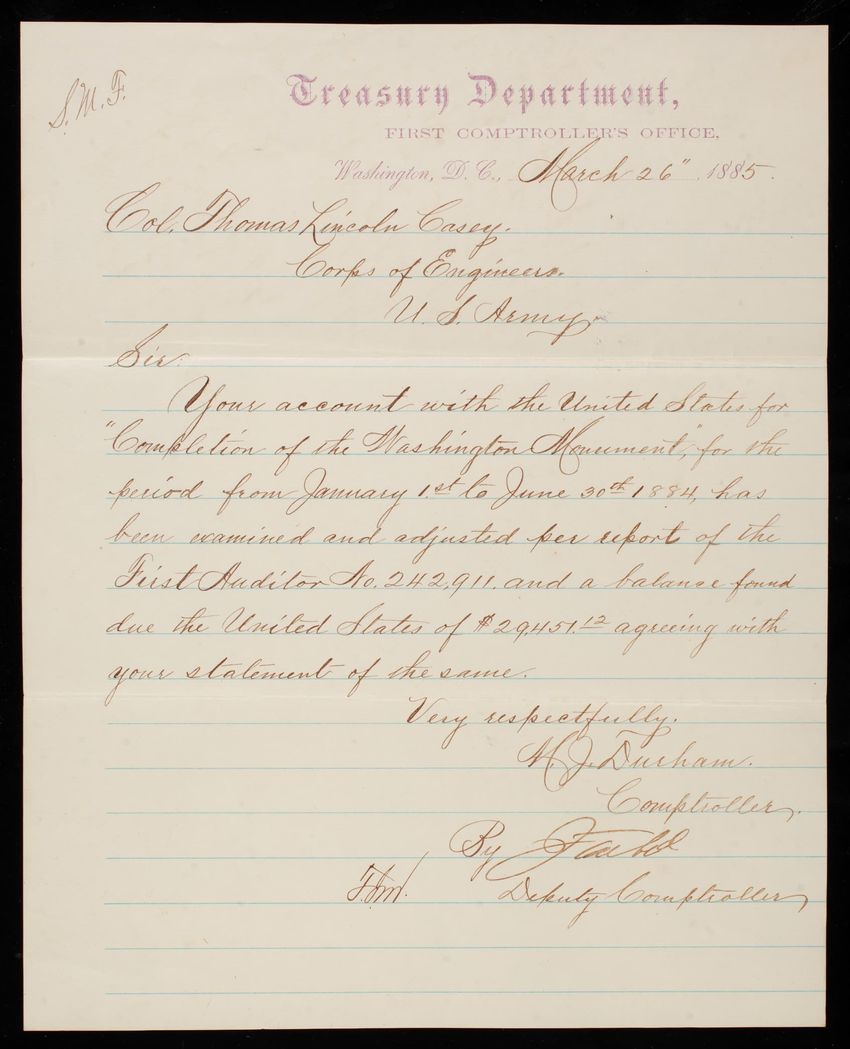 S. M. F.
Treasury Department,
FIRST COMPTROLLER'S OFFICE,
Washington, D. C., March 26" 1885.
Col. Thomas Lincoln Casey.
Corps of Engineers.
U. S. Army.
Sir:
Your account with the United States for
"Completion of the Washington Monument", for the
period from January 1st to June 30th 1884, has
been examined and adjusted per report of the
First Auditor No. 242,911. and a balance found
due the United States of $29451.12 agreeing with
your statement of the same.
Very respectfully.
M. J. Durham.
Comptroller.
By
Deputy Comptroller